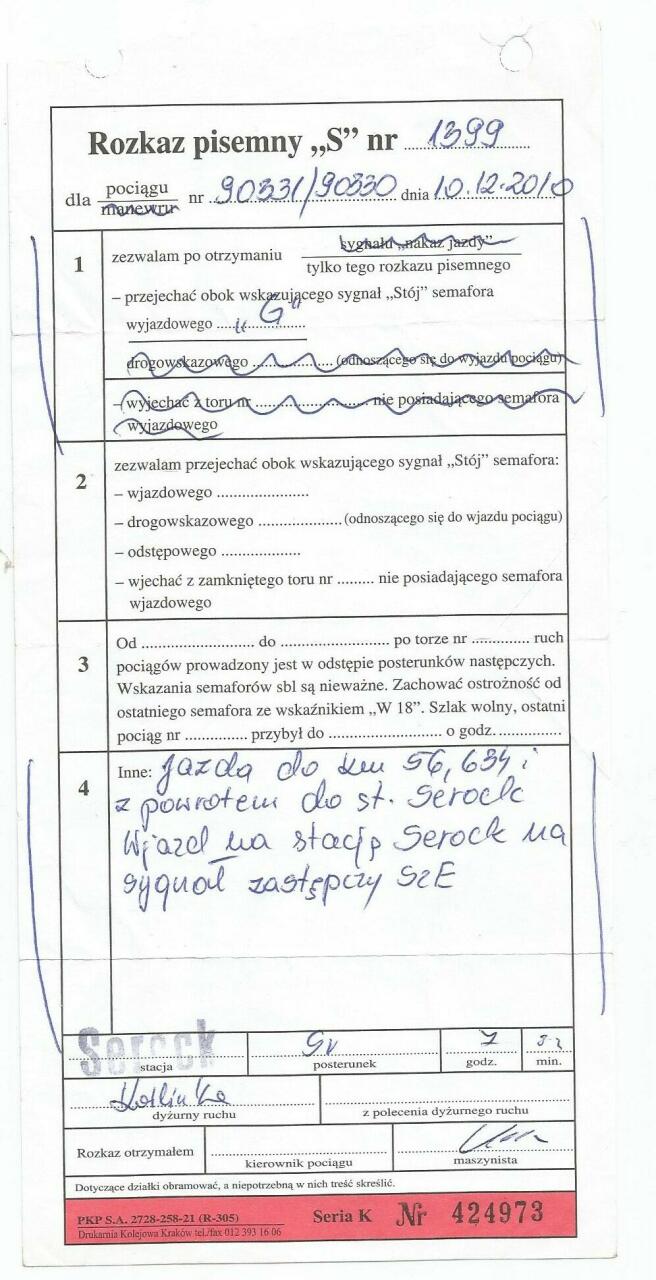 Rozkaz pisemny „S” nr 1399
dla pociągu
manewru nr 90331/90330 dnia 10.12.2010
1
zezwalam po otrzymaniu sygnału „nakaz jazdy”
tylko tego rozkazu pisemnego
– przejechać obok wskazującego sygnał „Stój” semafora
wyjazdowego .... „G” ....
drogowskazowego .................... (odnoszącego się do wyjazdu pociągu)
– wyjechać z toru nr ............................ nie posiadającego semafora
wyjazdowego
2
zezwalam przejechać obok wskazującego sygnał „Stój” semafora:
– wjazdowego .......................
– drogowskazowego ..................... (odnoszącego się do wjazdu pociągu)
– odstępowego ....................
– wjechać z zamkniętego toru nr ......... nie posiadającego semafora
wjazdowego
3
Od ............................ do ........................... po torze nr .............. ruch
pociągów prowadzony jest w odstępie posterunków następczych.
Wskazania semaforów sbl są nieważne. Zachować ostrożność od
ostatniego semafora ze wskaźnikiem „W 18”. Szlak wolny, ostatni
pociąg nr ................ przybył do ............................ o godz. ................
4
Inne: Jazda do km 56,634 i
z powrotem do st. Serock
Wjazd na stację Serock na
sygnał zastępczy SzE
Serock
7
stacja posterunek godz. min.
dyżurny ruchu z polecenia dyżurnego ruchu
Rozkaz otrzymałem
kierownik pociągu maszynista
Dotyczące działki obramować, a niepotrzebną w nich treść skreślić.
PKP S.A. 2728-258-21 (R-305) Seria K Nr 424973
Drukarnia Kolejowa Kraków tel./fax 012 393 16 06